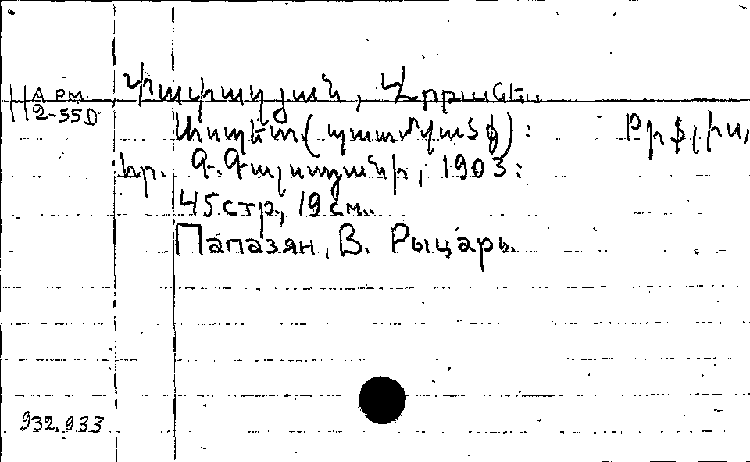 Арм
2-550
Փափազյան, Վրթանես.
Ասպետ (պատմվածք): Թիֆլիս,
հր. Գ. Գալստյանի, 1903:
45 стр., 19 см.
Папазян, В. Рыцарь.
932.933